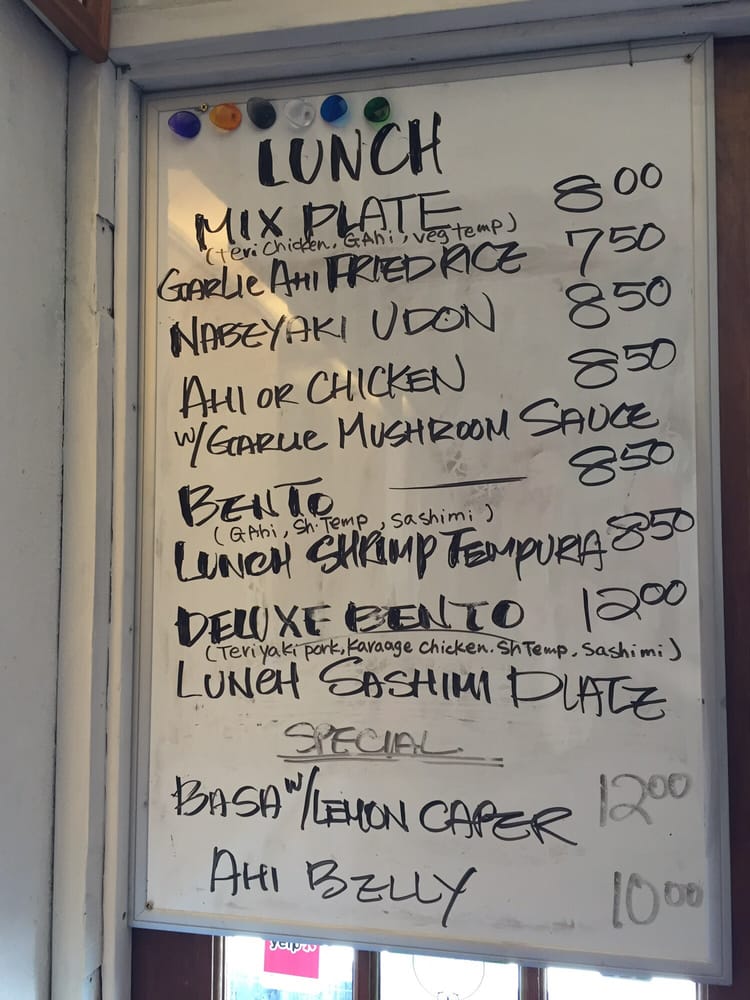 LUNCH
MIX PLATE 8.00
(teri chicken, GAhi, veg temp)
GARLIC AHI FRIED RICE 7.50
NABEYAKI UDON 8.50
AHI OR CHICKEN 8.50
W/GARLIC MUSHROOM SAUCE
BENTO 8.50
(GAhi, Sh.Temp, sashimi)
LUNCH SHRIMP TEMPURA 8.50
DELUXE BENTO 12.00
(Teriyaki pork, Karaage chicken. ShTemp, Sashimi)
LUNCH SASHIMI PLATE
SPECIAL
BASA W/LEMON CAPER 12.00
AHI BELLY 10.00
yelp